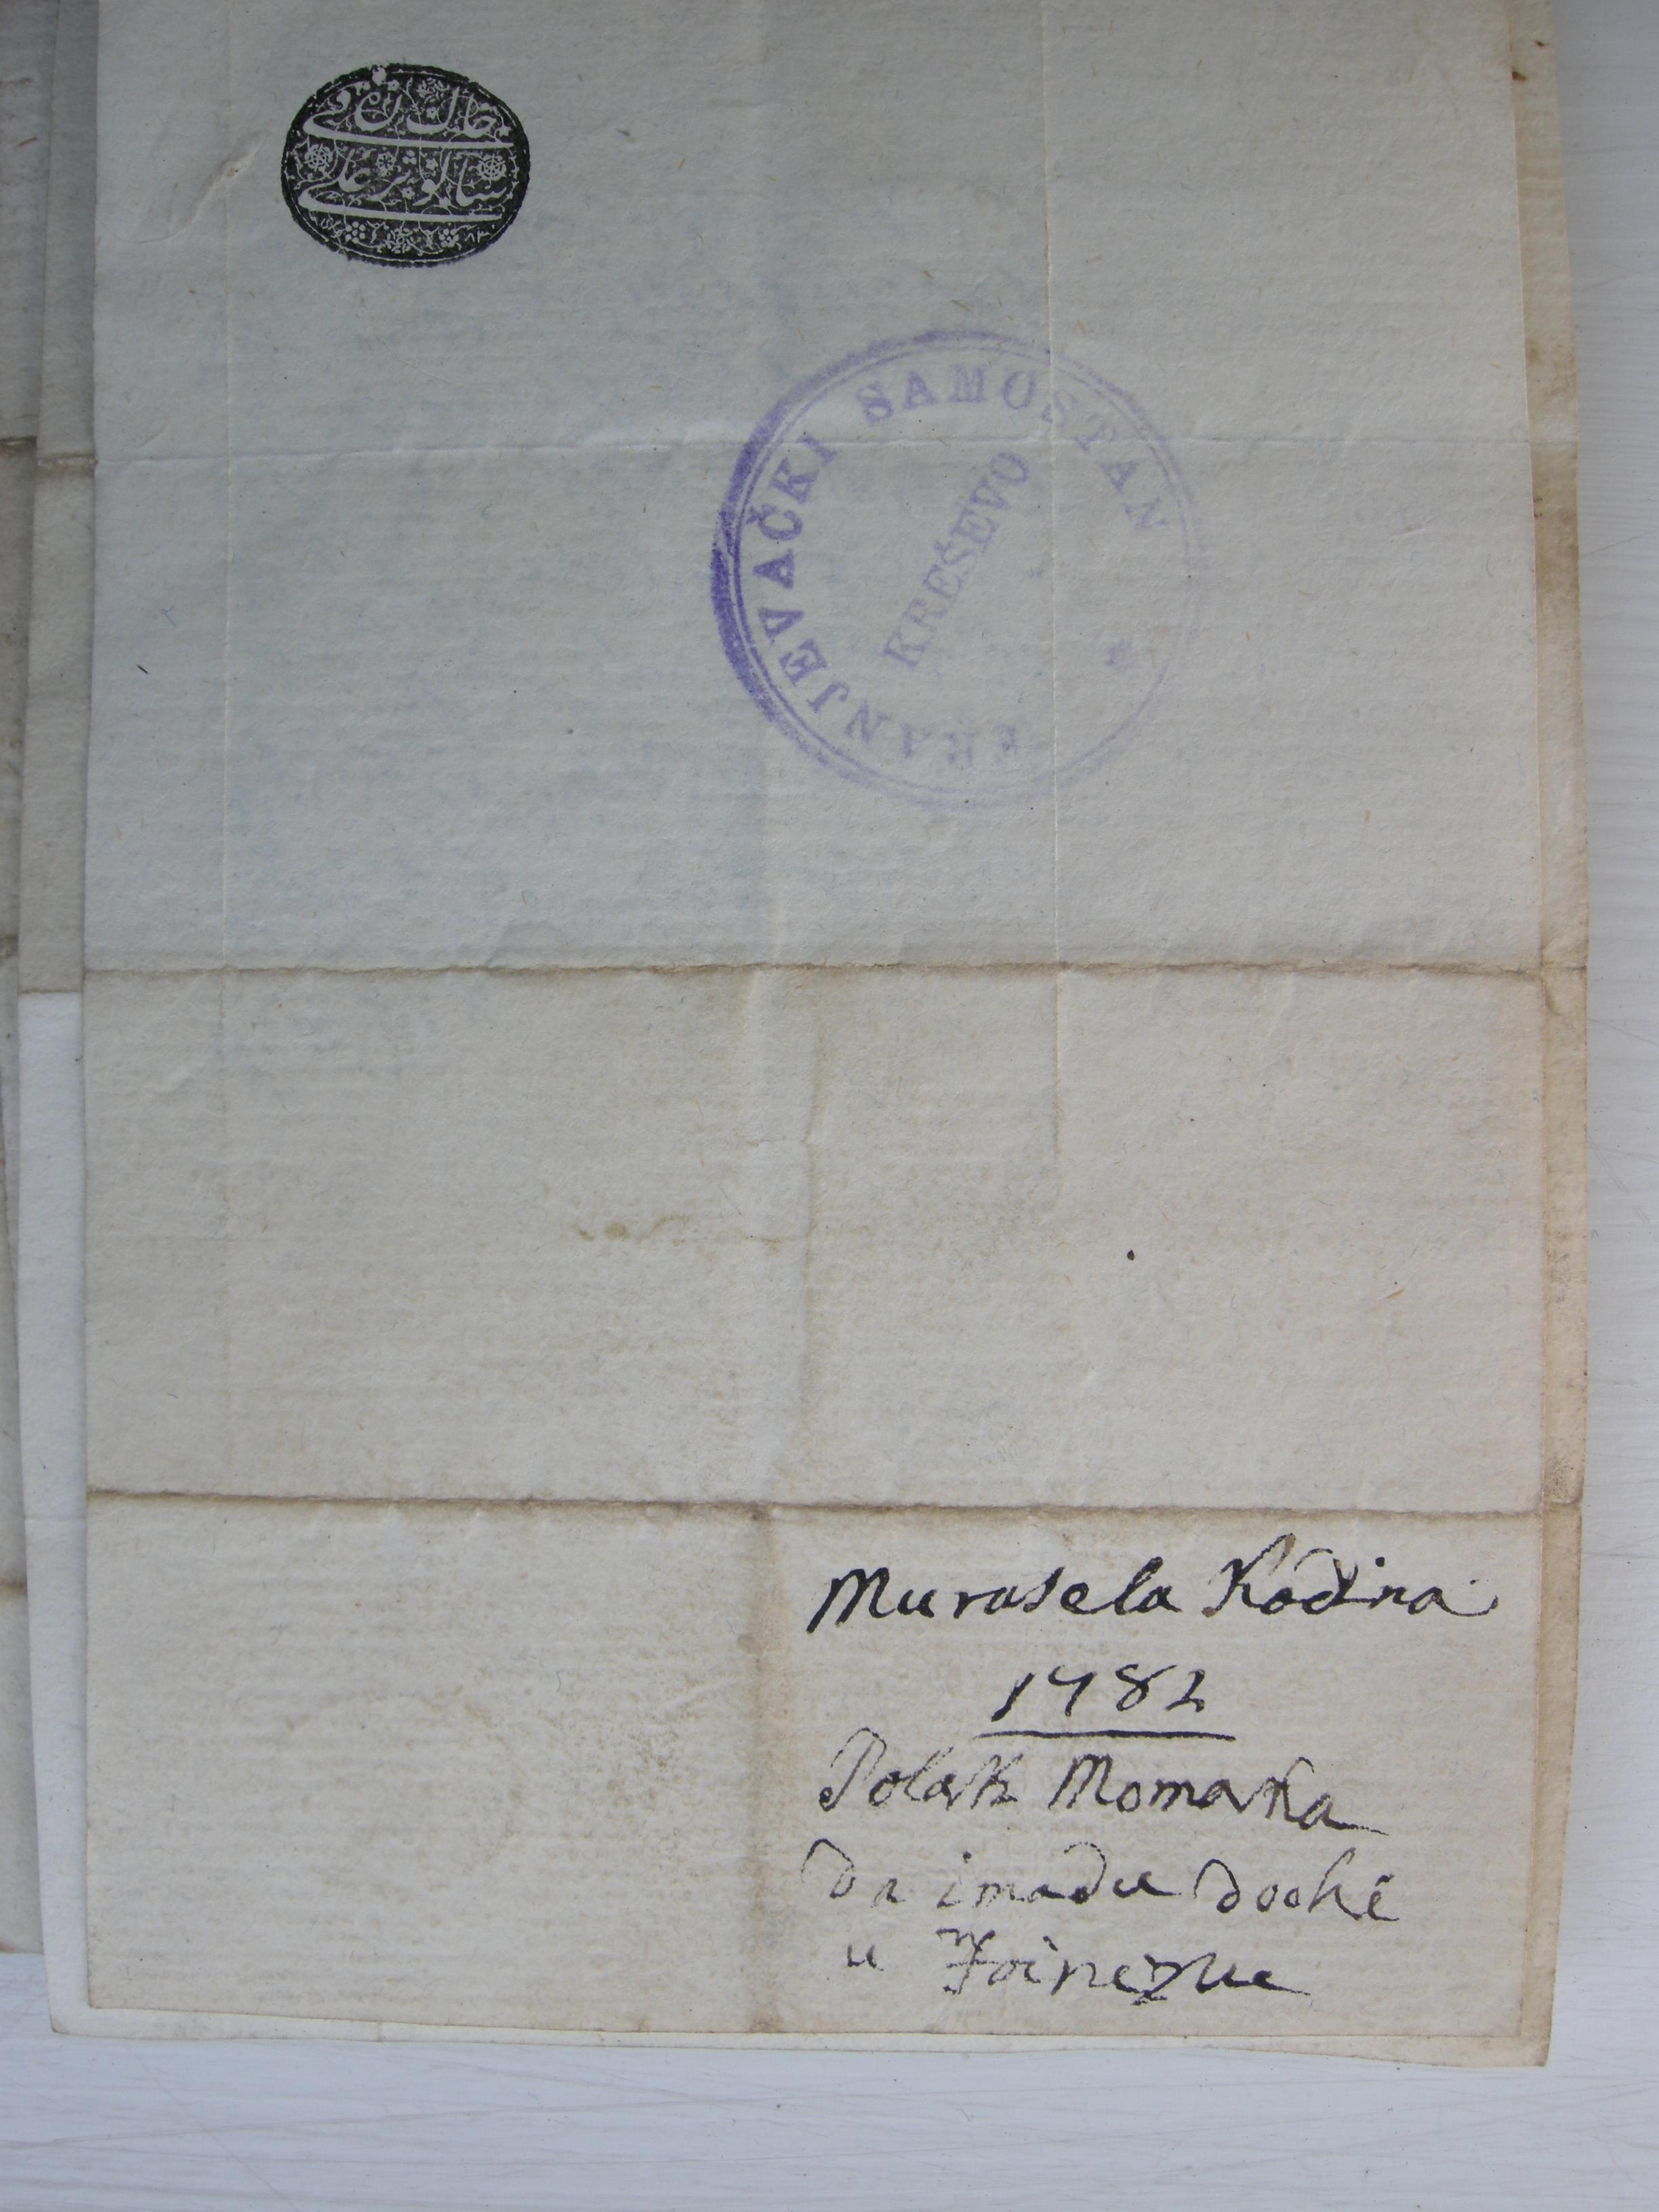 FRANJEVAČKI SAMOSTAN
KREŠEVO
Murasela Kadina
1782
Polak Momaka
da imadu doohi
u Foinezue